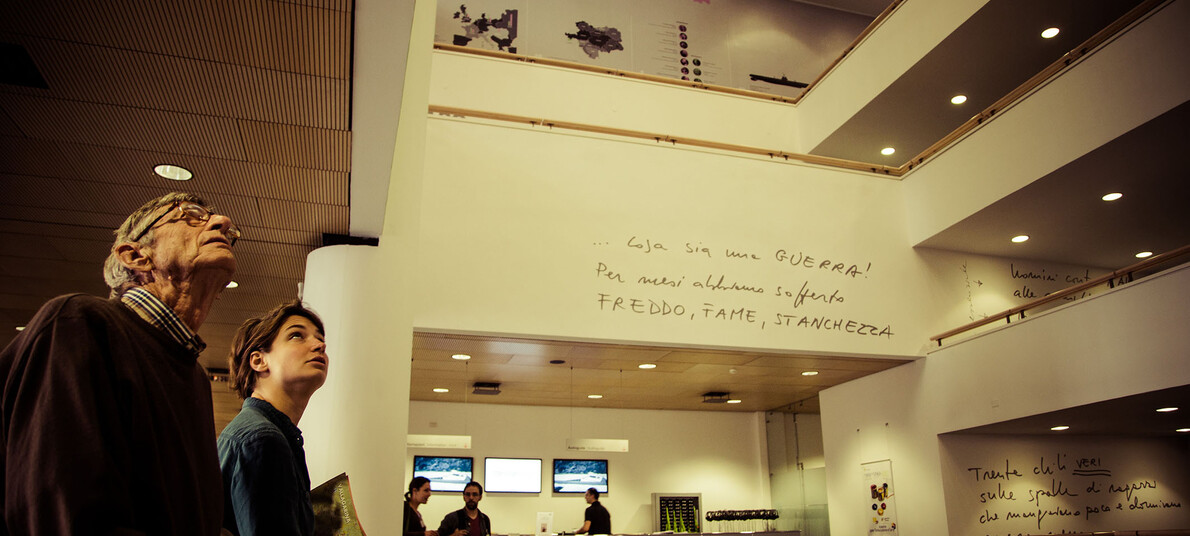 ... Cosa sia una GUERRA!
Per mesi abbiamo sofferto
FREDDO, FAME, STANCHEZZA
Uomini
alle
Trenta chili VERI
sulle spalle di ragazzi
che mangiavano poco e dormivano